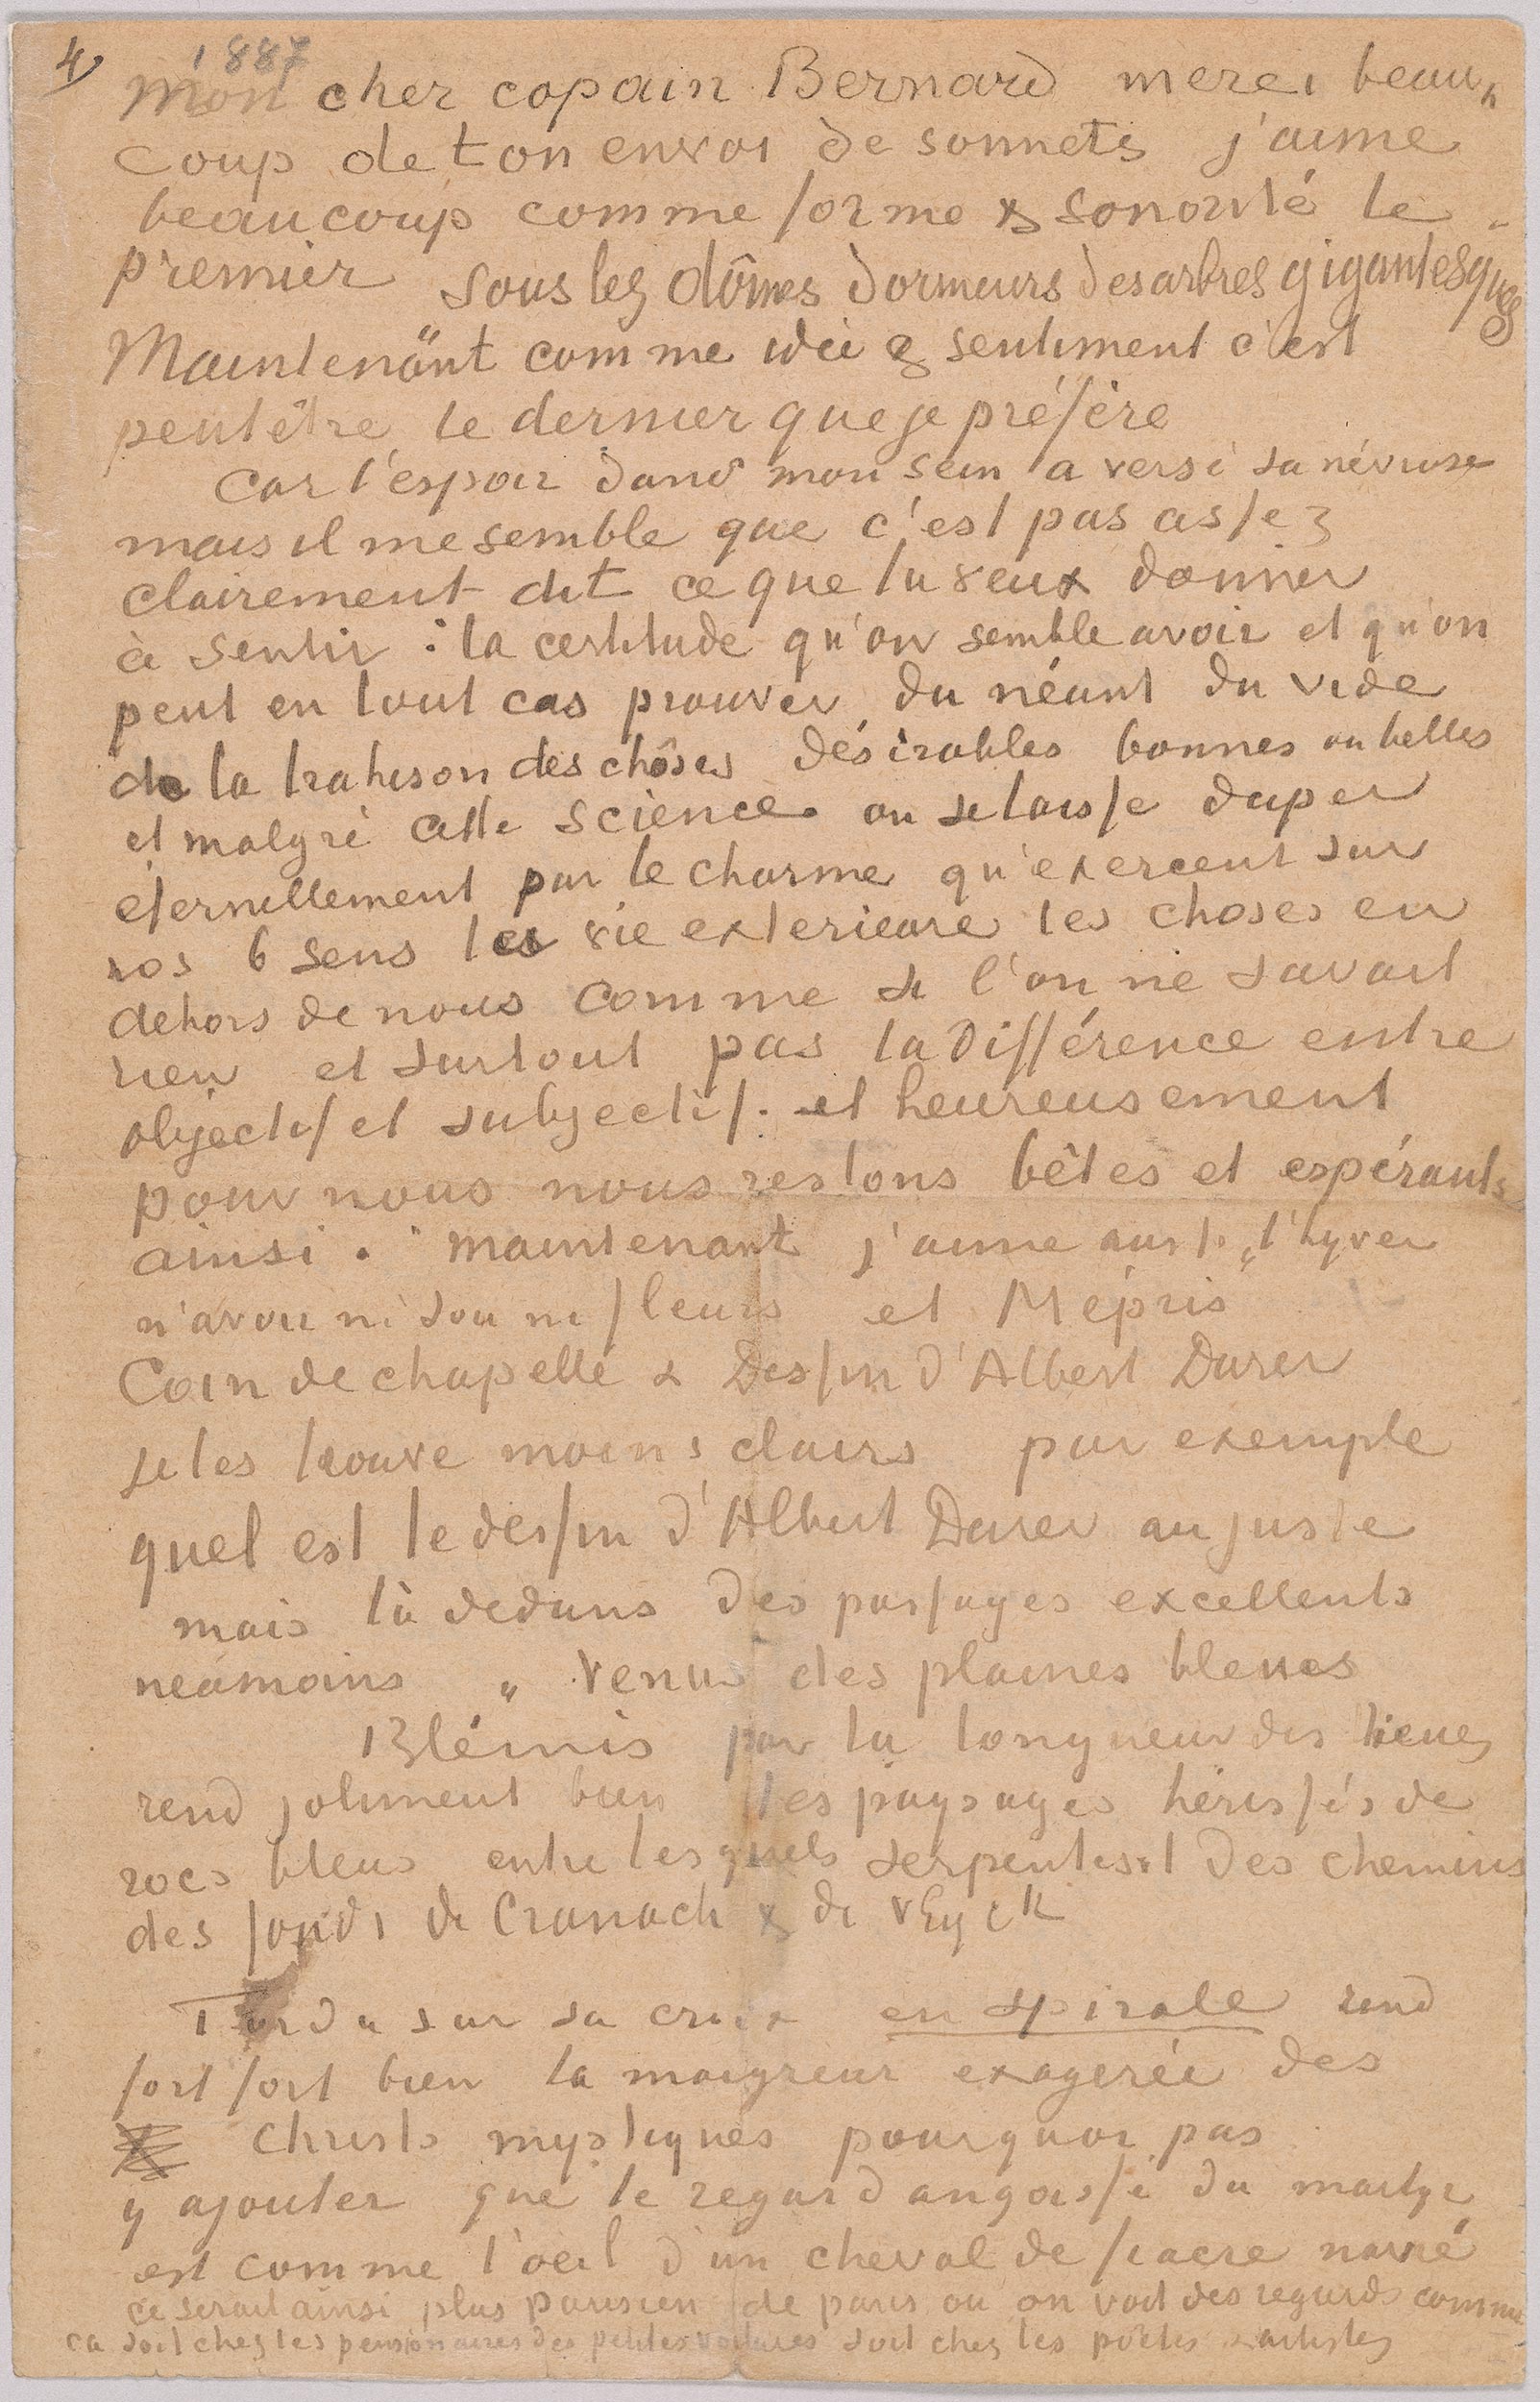 4
1887
Mon cher copain Bernard merci beau„
coup de ton envoi de sonnets j'aime
beaucoup comme forme & sonorité le
premier sous les dômes dormeurs des arbres gigantesques
Maintenant comme idée & sentiment c'est
peutêtre le dernier que je préfère
Car l'espoir dans mon sein a versé sa névrose
mais il me semble que c'est pas assez
clairement dit ce que tu veux donner
à sentir : la certitude qu'on semble avoir et qu'on
peut en tout cas prouver du néant du vide
de la trahison des chôses désirables bonnes ou belles
et malgré cette science on se laisse duper
éternellement par le charme qu'exercent sur
nos 6 sens les vie exterieure les choses en
dehors de nous comme si l'on ne savait
rien et surtout pas la différence entre
objectif et subjectif. et heureusement
pour nous nous restons bêtes et espérants
ainsi. maintenant j'aime aussi „l'hyver
n'avoir ni sou ni fleurs et Mépris
Coin de chapelle & Dessin d'Albert Durer
je les trouve moins clairs par exemple
quel est le dessin d'Albert Durer au juste
mais là dedans des passages excellents
néamoins „ Venus des plaines bleues
Blémis par la longueur des lieues
rend joliment bien les paysages hérissés de
rocs bleus entre lesquels serpentent des chemins
des fonds de Cranach & de v Eyck
Tordu sur sa croix en spirale rend
fort fort bien la maigreur exagerée des
Christs mystiques pourquoi pas
y ajouter que le regard angoissé du martyr
est comme l'oeil d'un cheval de fiacre navré
ce serait ainsi plus parisien de paris où on voit des regards comme
ca soit chez les pensionaires des petites voitures soit chez les poëtes & artistes